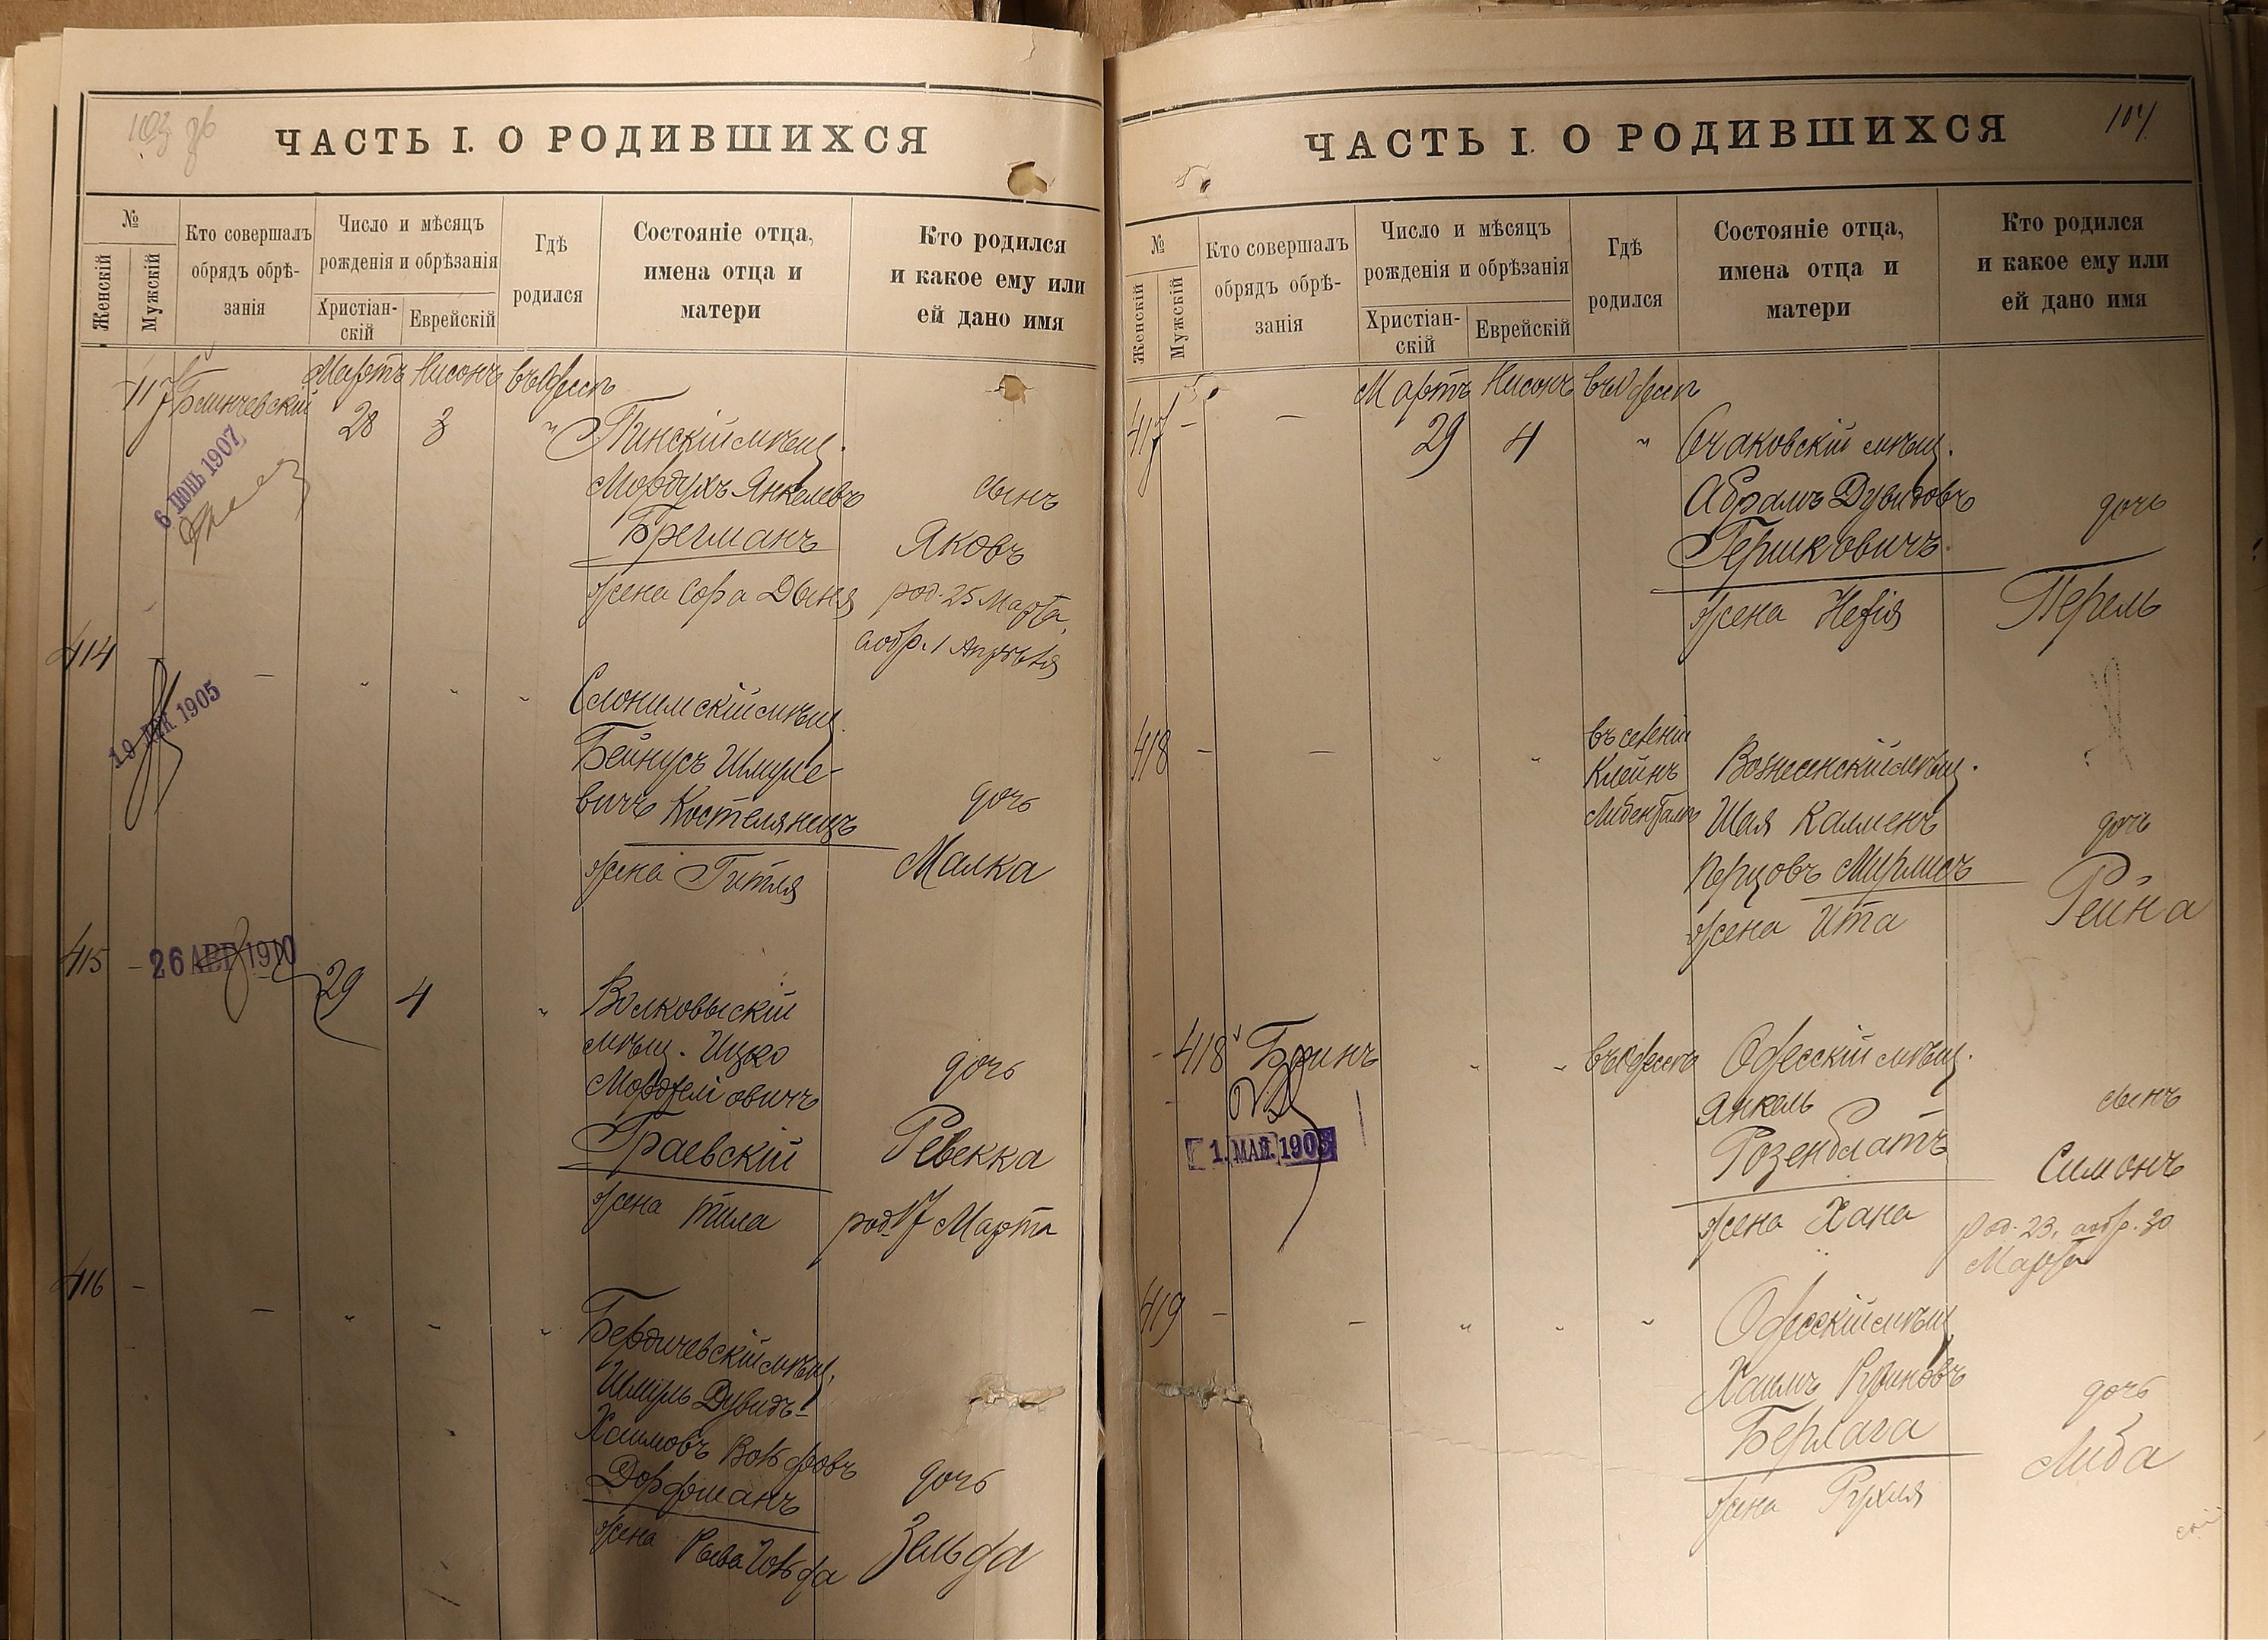 ЧАСТЬ I. О РОДИВШИХСЯ
№
Женскій
Мужскій
Кто совершалъ
обрядъ обрѣ-
занія
Число и мѣсяцъ
рожденія и обрѣзанія
Христіан-
скій
Еврейскій
Гдѣ
родился
Состояніе отца,
имена отца и
матери
Кто родился
и какое ему или
ей дано имя
Мартъ Нисонъ въ Одессѣ
28 3 "
6 ІЮНЬ 1907
Пинскій мѣщ.
Мордухъ Янкелевъ
Брегманъ
жена Сора Двыня
сынъ
Яковъ
род. 25 Марта,
а обр. 1 Апрѣля
414 - " " "
Слонимскій мѣщ.
Бейнусъ Шмуле-
вичъ Костелянецъ
жена Гитля
дочь
Малка
415 - 26 АВГ 1910
29 4 "
Волковыскій
мѣщ. Ицко
Мордхеліовичъ
Граевскій
жена Тила
дочь
Ревекка
род. 17 Марта
416 - - " " "
Бердичевскій мѣщ.
Шмуль Дувидъ-
Хаимовъ Вольфовъ
Дорфманъ
жена Рыва Гольда
дочь
Зельда
ЧАСТЬ I. О РОДИВШИХСЯ
104
№
Женскій
Мужскій
Кто совершалъ
обрядъ обрѣ-
занія
Число и мѣсяцъ
рожденія и обрѣзанія
Христіан-
скій
Еврейскій
Гдѣ
родился
Состояніе отца,
имена отца и
матери
Кто родился
и какое ему или
ей дано имя
Мартъ Нисонъ въ Одессѣ
417 - - 29 4 "
Очаковскій мѣщ.
Абрамъ Дувидовъ
Гершковичъ
жена Нехія
дочь
Перель
418 - - " "
въ селеніи
Клейнъ
Либенталь
Вознесенскій мѣщ.
Шая Калменъ
Перцовъ Мирмисъ
жена Ита
дочь
Рейна
- 418 " " въ Одессѣ
Одесскій мѣщ.
Янкель
Розенблатъ
жена Хана
сынъ
Симонъ
род. 23, а обр. 30
Марта
419 - - " " "
Одесскій мѣщ.
Хаимъ Рувиновъ
Берлага
жена Рухля
дочь
Либа